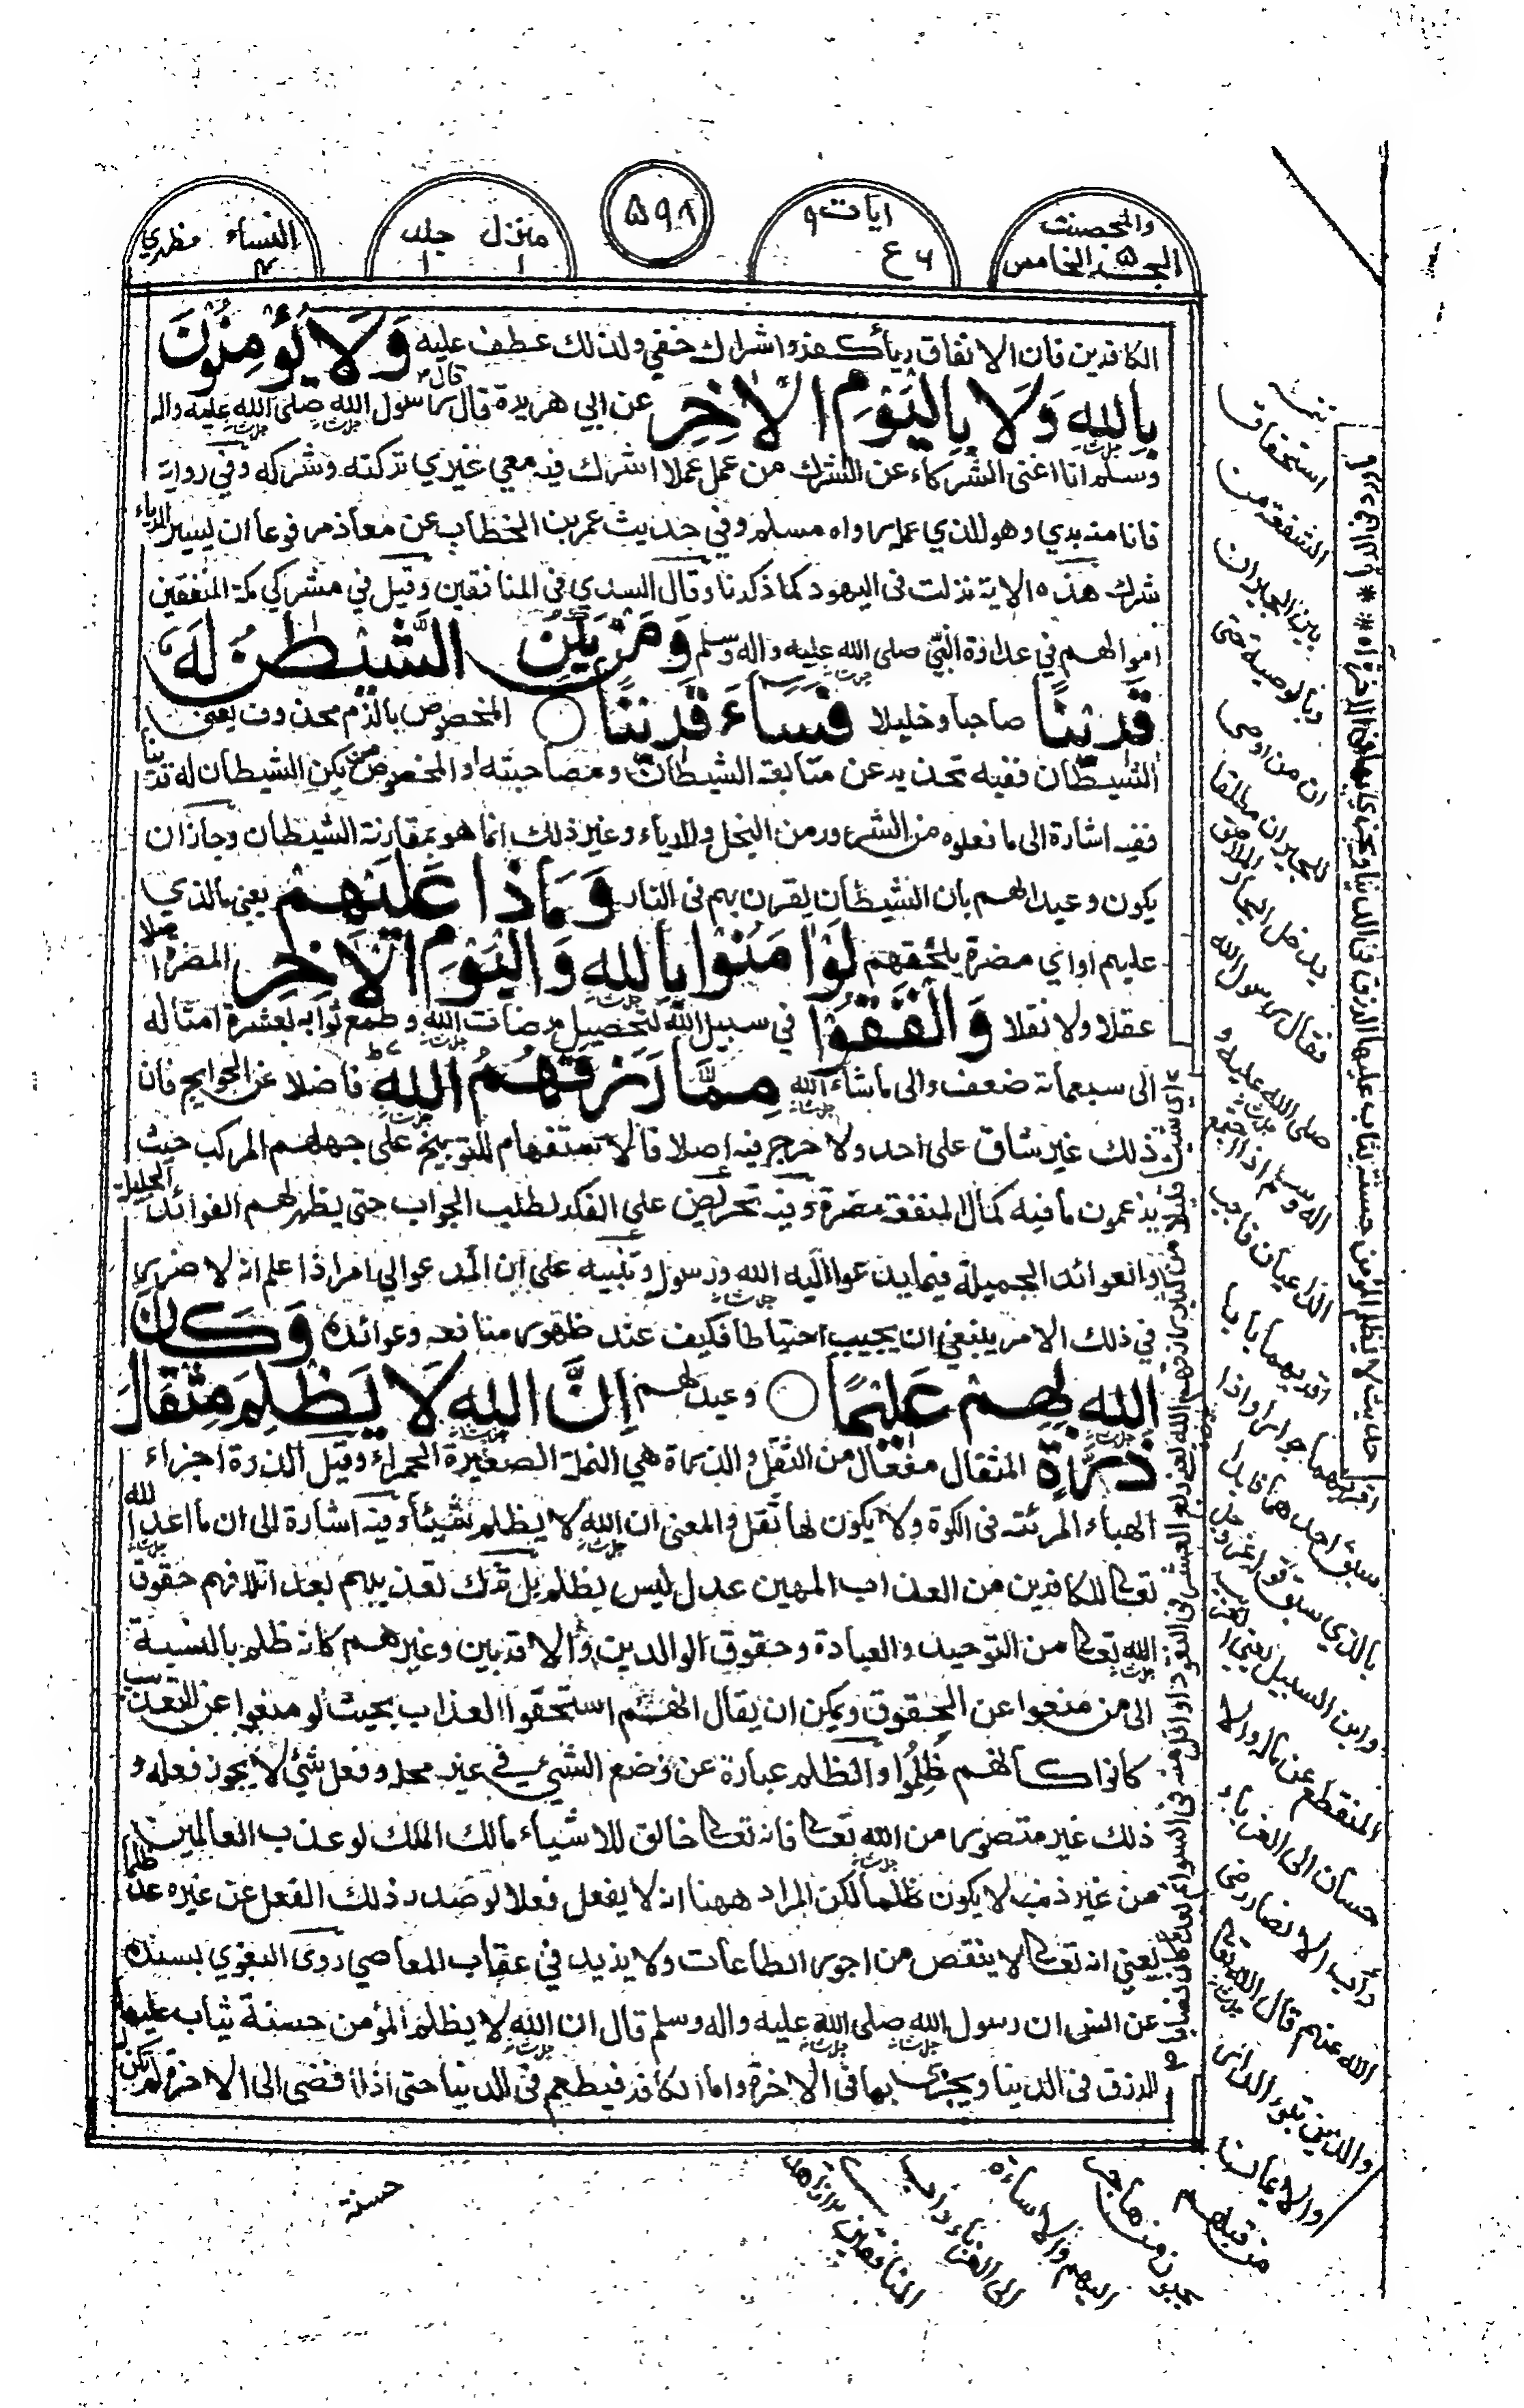 والمحصنت
الجزء الخامس ۵
ايات ۹
ع ۶
۵۹۸
منزل ۱ جلد ۱
النساء ۴ مظهري
الكافرين فان الانفاق رياء كفر واشراك خفي ولذلك عطف عليه وَلَا يُؤْمِنُوْنَ
بِاللهِ وَلَا بِالْيَوْمِ الْاٰخِرِ عن ابي هريرة قال قال رسول الله صلى الله عليه واله
وسلم انا اغنى الشركاء عن الشرك من عمل عملا اشرك فيه معي غيري تركته وشركه وفي رواية
فانا منه بري وهو للذي عمله رواه مسلم وفي حديث عمر بن الخطاب عن معاذ مرفوعا ان يسير الرياء
شرك هذه الاية نزلت في اليهود كما ذكرنا وقال السدي في المنافقين وقيل في مشركي مكة المنفقين
اموالهم في عداوة النبي صلى الله عليه واله وسلم وَمَنْ يَّكُنِ الشَّيْطٰنُ لَهٗ
قَرِيْنًا صاحبا وخليلا فَسَآءَ قَرِيْنًا ○ المخصوص بالذم محذوف يعني
الشيطان ففيه تحذير عن متابعة الشيطان ومصاحبته او المخصوص من يكن الشيطان له قرينا
ففيه اشارة الى ما فعلوه من الشرور من البخل والرياء وغير ذلك انما هو بمقارنة الشيطان وجاز ان
يكون وعيدا لهم بان الشيطان يقرن بهم في النار وَمَاذَا عَلَيْهِمْ يعني ما الذي
عليهم او اي مضرة يلحقهم لَوْ اٰمَنُوْا بِاللهِ وَالْيَوْمِ الْاٰخِرِ لا مضرة اصلا
عقلا ولا نقلا وَاَنْفَقُوْا في سبيل الله لتحصيل مرضات الله وطمع ثوابه بعشرة امثاله
الى سبعمأة ضعف والى ما شاء الله مِمَّا رَزَقَهُمُ اللهُ فاضلا عن الحوايج فان
ذلك غير شاق على احد ولا حرج فيه اصلا فالاستفهام للتوبيخ على جهلهم المركب حيث
يزعمون ما فيه كمال المنفعة مضرة وفيه تحريض على الفكر لطلب الجواب حتى يظهر لهم الفوائد الجليلة
والعوائد الجميلة فيما يدعوا اليه الله ورسوله وتنبيه على ان المدعو الى امر اذا علم انه لا ضرر
في ذلك الامر ينبغي ان يجيب احتياطا فكيف عند ظهور منافعه وعوائده وَكَانَ
اللهُ بِهِمْ عَلِيْمًا ○ وعيد لهم اِنَّ اللهَ لَا يَظْلِمُ مِثْقَالَ
ذَرَّةٍ المثقال مفعال من الثقل والذرة هي النملة الصغيرة الحمراء وقيل الذرة اجزاء
الهباء المرئية في الكوة ولا يكون لها ثقل والمعنى ان الله لا يظلم شيئا وفيه اشارة الى ان ما اعد الله
تعالى للكافرين من العذاب المهين عدل ليس بظلم بل ترك تعذيبهم بعد اتلافهم حقوق
الله تعالى من التوحيد والعبادة وحقوق الوالدين والاقربين وغيرهم كانه ظلم بالنسبة
الى من منعوا عن الحقوق ويمكن ان يقال انهم استحقوا العذاب بحيث لو منعوا عن التعذيب
كانوا كانهم ظُلِمُوا والظلم عبارة عن وضع الشيء في غير محله وفعل شيء لا يجوز فعله و
ذلك غير متصور من الله تعالى فانه تعالى خالق للاشياء مالك الملك لو عذب العالمين
من غير ذنب لا يكون ظلما لكن المراد ههنا انه لا يفعل فعلا لو صدر ذلك الفعل عن غيره عد ظلما
يعني انه تعالى لا ينقص من اجور الطاعات ولا يزيد في عقاب المعاصي روى البغوي بسنده
عن انس ان رسول الله صلى الله عليه واله وسلم قال ان الله لا يظلم المؤمن حسنة يثاب عليها
الرزق في الدنيا ويجزى بها في الاخرة واما الكافر فيطعم في الدنيا حتى اذا افضى الى الاخرة لم يكن له
حسنة
استحقاق
الشفعة من
بين الجيران
وبالوصية حتى
ان من اوصى
للجيران مطلقا
يدخل الجار الملاصق
فقال رسول الله
صلى الله عليه و
اله وسلم اذا اجتمع
الداعيان فاجب
اقربهما بابا
اقربهما جوارا واذا
سبق احدهما فابدأ
بالذي سبق
وابن السبيل يعني
المنقطع عن ماله والا
حسان الى الغرباء
دأب الانصار رضى
الله عنهم قال الله تعالى
والذين تبوءو الدار
والايمان
من قبلهم
يحبون من هاجر
اليهم والاساءة
الى الغرباء داب
المنافقين
حديث لا يظلم المؤمن حسنة يثاب عليها الرزق في الدنيا ويجزى بها في الاخرة